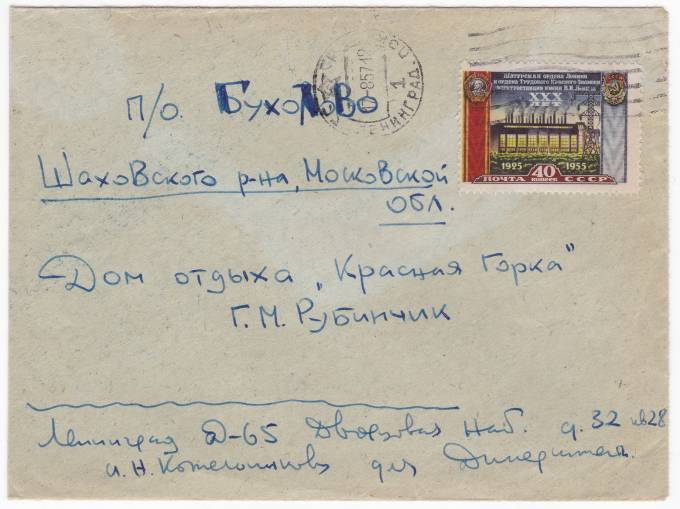 ЛЕНИНГРАД 1
ШАТУРСКАЯ ОРДЕНА ЛЕНИНА
И ОРДЕНА ТРУДОВОГО КРАСНОГО ЗНАМЕНИ
ЭЛЕКТРОСТАНЦИЯ ИМЕНИ В.И.ЛЕНИНА
XXX
ЛЕТ
1925 1955
ПОЧТА 40 КОПЕЕК СССР
П/О Бухолово
Шаховского р-на, Московской
обл.
Дом отдыха „Красная Горка"
Г.М. Рубинчик
Ленинград Д-65 Дворцовая Наб. д. 32 кв 28
для